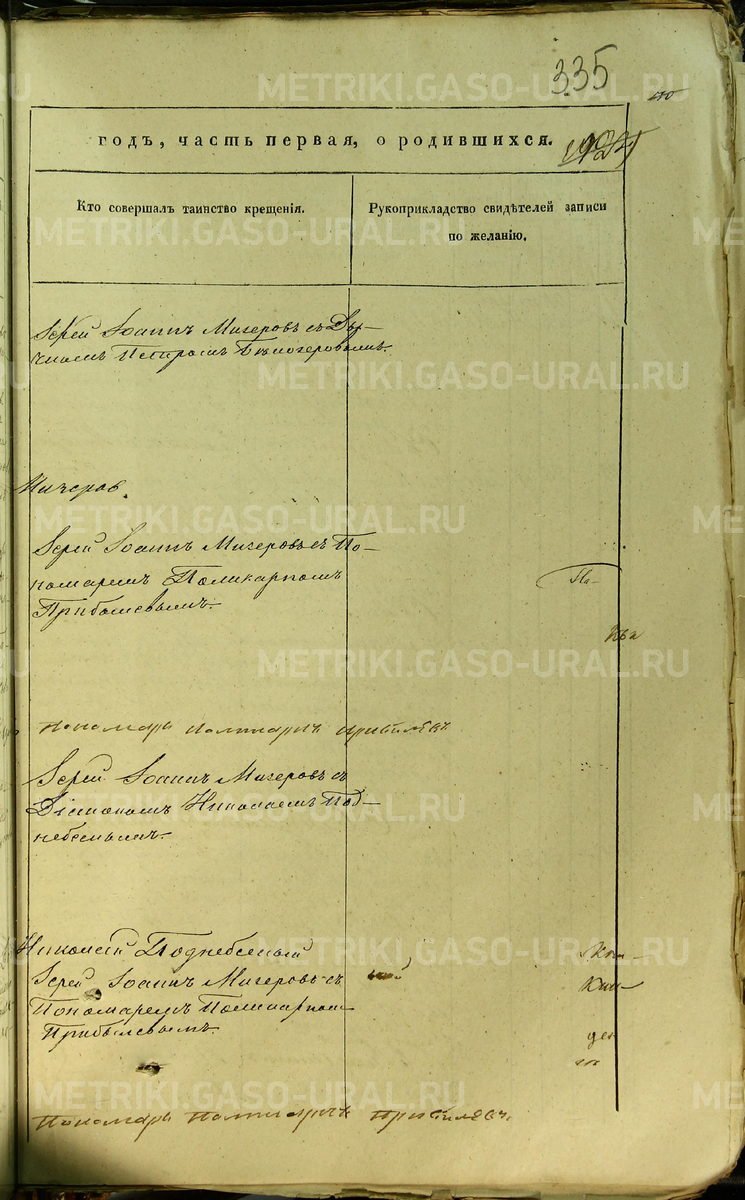 335
годъ, часть первая, о родившихся.
Кто совершалъ таинство крещенія.
Рукоприкладство свидѣтелей записи
по желанію.
Іерей Іоаннъ Мичеровъ съ Дья-
чкомъ Петромъ
Мичеровъ
Іерей Іоаннъ Мичеровъ съ По-
номаремъ Поликарпомъ
Прибылевымъ.
Пономарь Поликарпъ Прибылевъ
Іерей Іоаннъ Мичеровъ съ
Діакономъ Николаемъ Под-
небеснымъ.
Николай Поднебесный
Іерей Іоаннъ Мичеровъ съ
Пономаремъ Поликарпомъ
Прибылевымъ.
Пономарь Поликарпъ Прибылевъ
METRIKI.GASO-URAL.RU